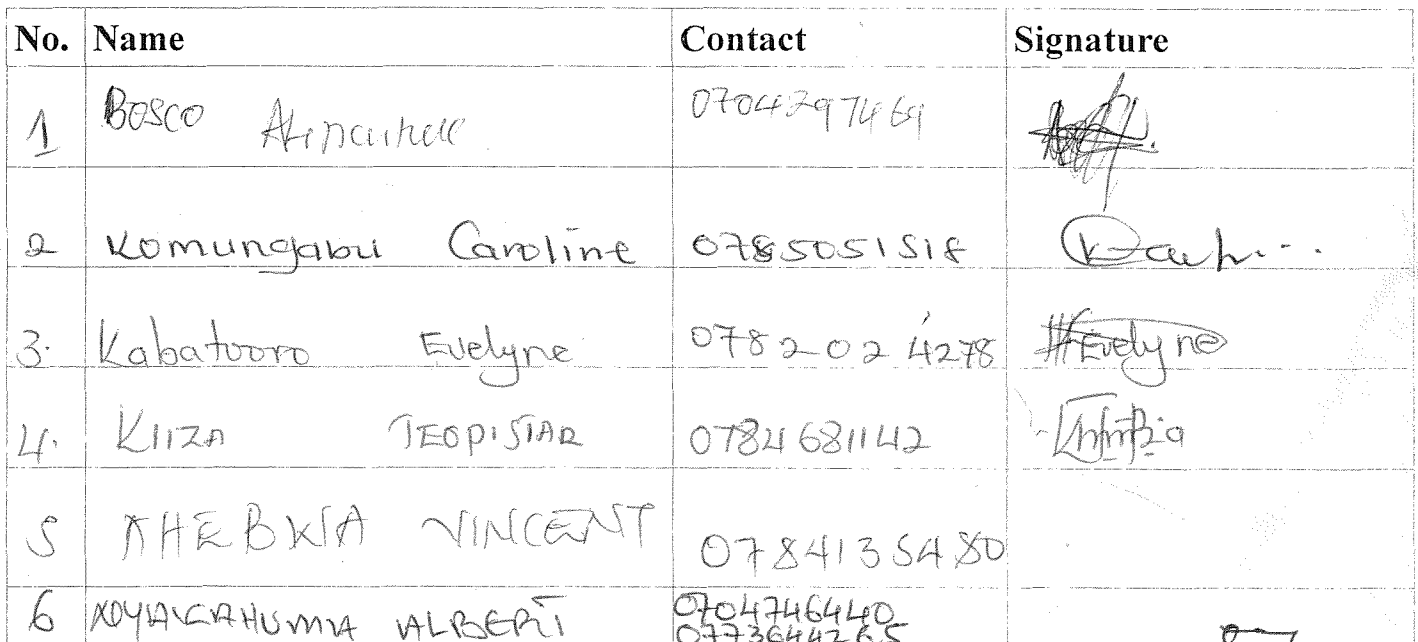 No. Name Contact Signature
1 BOSCO 0704397469
2 Komungabu Caroline 0785051518
3. Kabatooro Evelyne 0782024278 Evelyne
4. KIIZA TEOPISTAR 0784681142
5 VINCENT 0784135480
6 ALBERT 0704746440
0773644265